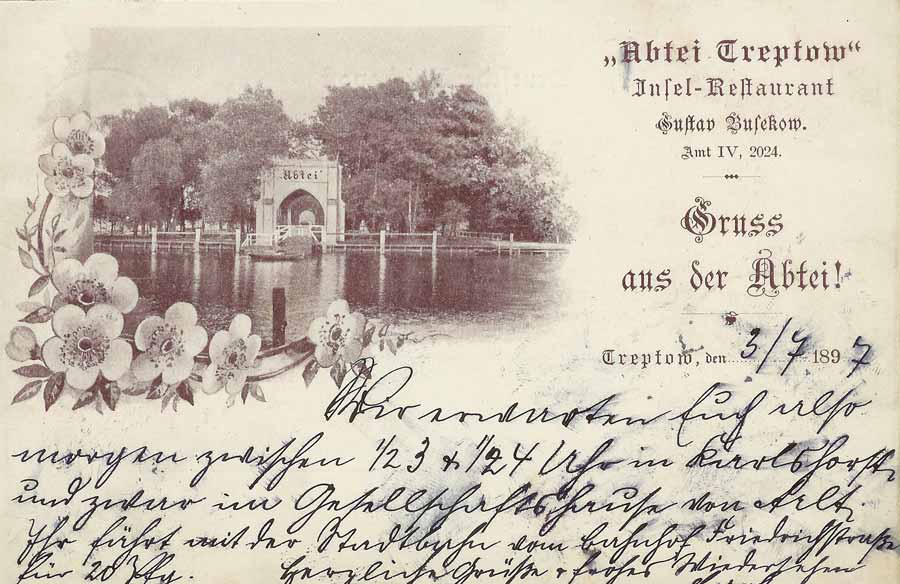 „Abtei Treptow“
Insel-Restaurant
Gustav Busekow.
Amt IV, 2024.
Gruss
aus der Abtei!
Treptow, den 3/7 1897
„Abtei“
Wir erwarten Euch also
morgen zwischen 1/2 3 & 1/2 4 Uhr in Karlshorst,
und zwar im Gesellschaftshause von Arlt.
Ihr fährt mit der Stadtbahn vom Bahnhof Friedrichstraße
für 20 Pfg. Herzliche Grüße & frohes Wiedersehen